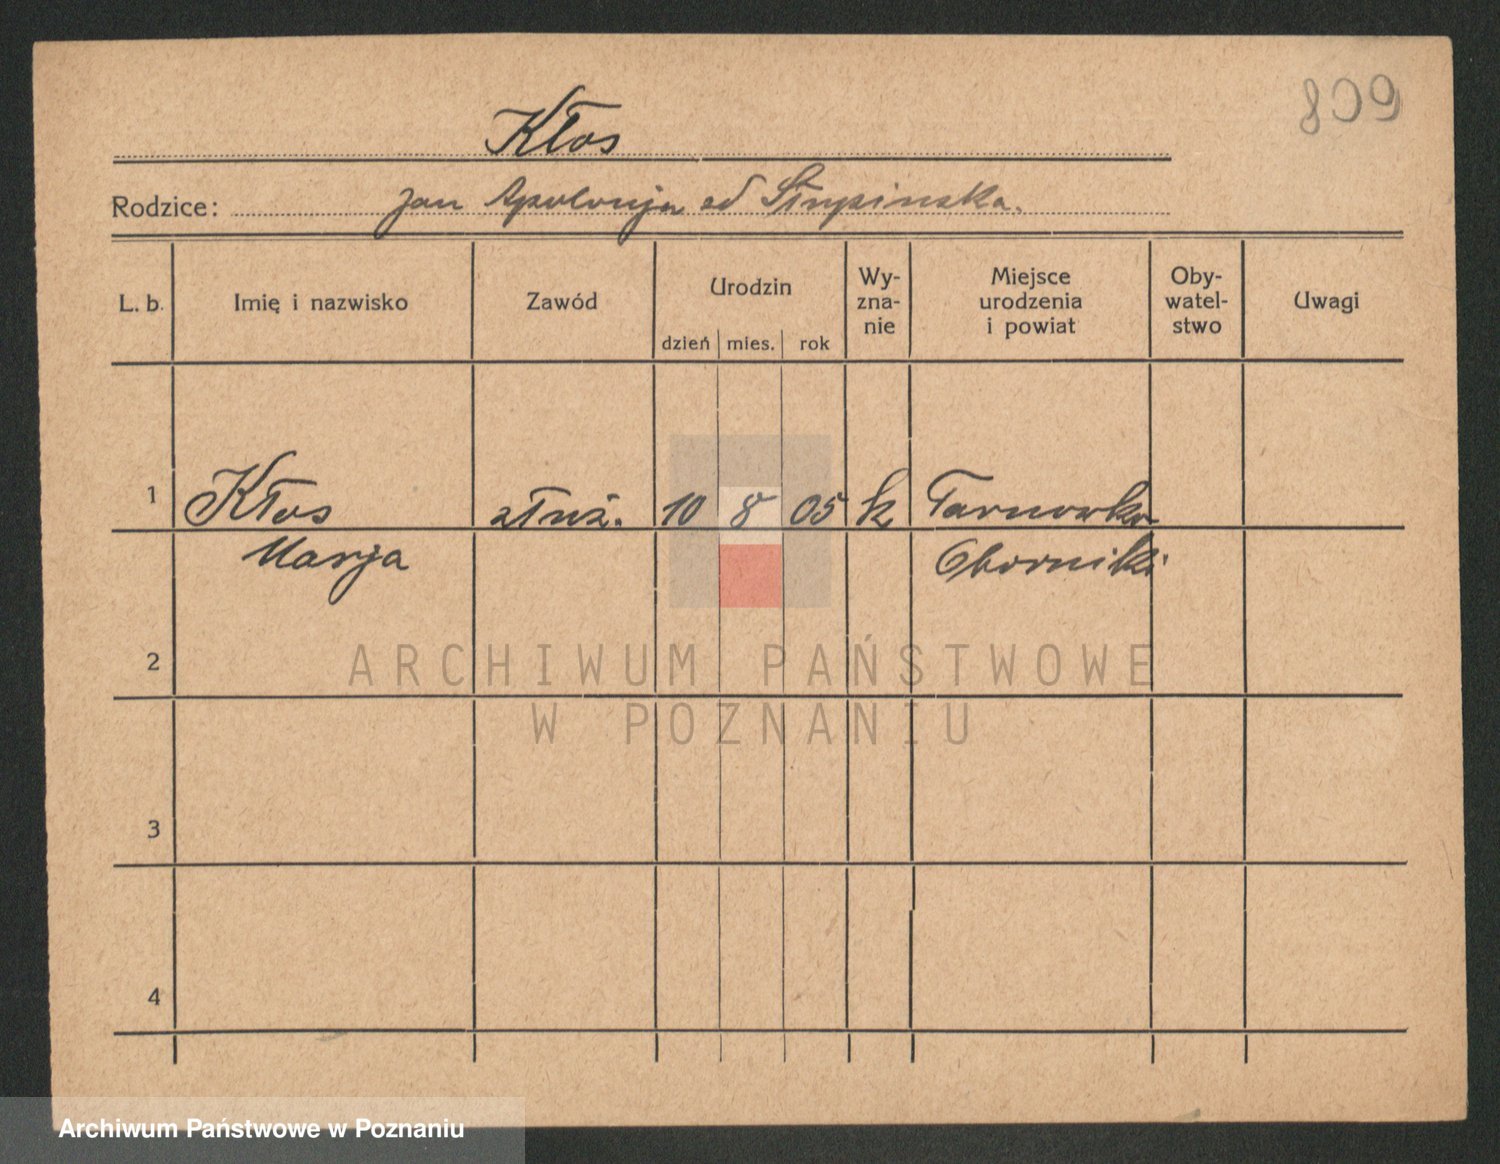 809
Kłos
Rodzice: Jan Apolonja od Stupinska.
L. b. Imię i nazwisko Zawód Urodzin dzień mies. rok Wy-zna-nie Miejsce urodzenia i powiat Oby-watel-stwo Uwagi
1 Kłos służ. 10 8 05 k Tarnowko
Marja Oborniki
2
ARCHIWUM PAŃSTWOWE
W POZNANIU
3
4
Archiwum Państwowe w Poznaniu